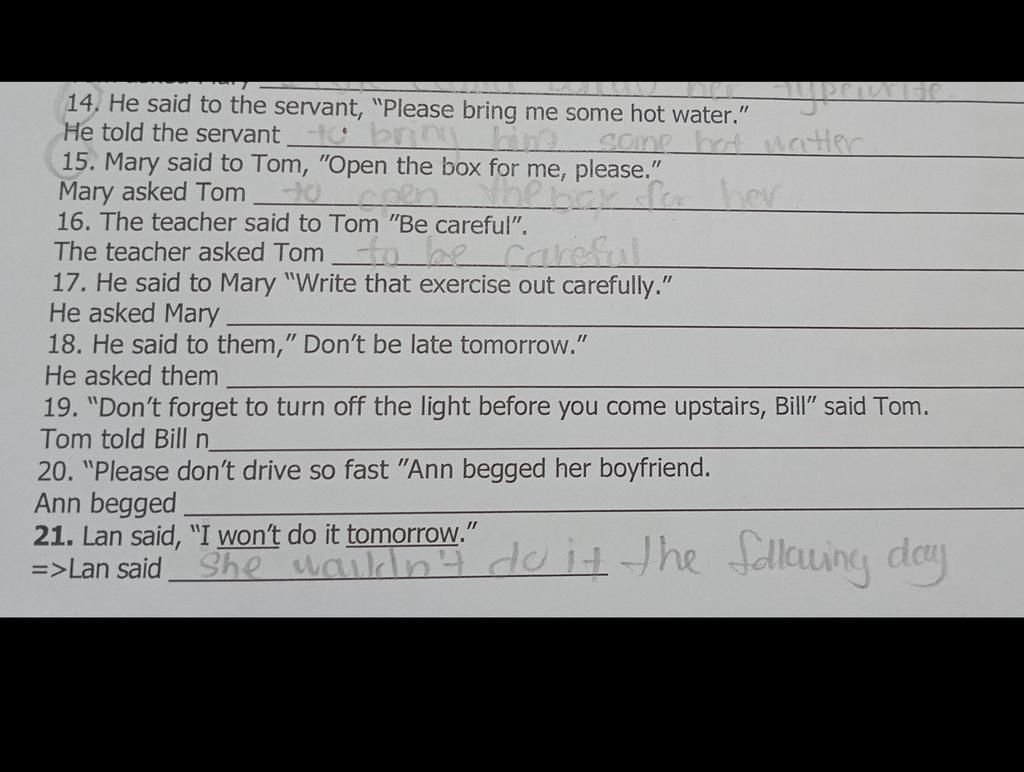 her typewrite.
14. He said to the servant, “Please bring me some hot water.”
He told the servant to bring him some hot watter.
15. Mary said to Tom, ”Open the box for me, please.”
Mary asked Tom to open the box for her.
16. The teacher said to Tom ”Be careful”.
The teacher asked Tom to be careful
17. He said to Mary “Write that exercise out carefully.”
He asked Mary
18. He said to them,” Don’t be late tomorrow.”
He asked them
19. “Don’t forget to turn off the light before you come upstairs, Bill” said Tom.
Tom told Bill n
20. “Please don’t drive so fast ”Ann begged her boyfriend.
Ann begged
21. Lan said, “I won’t do it tomorrow.”
=>Lan said She wouldn't do it the following day